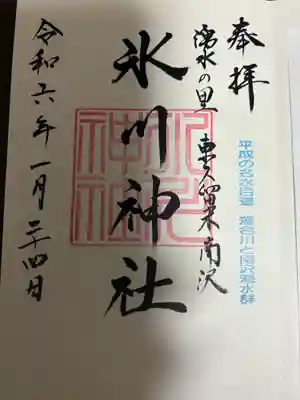 奉拝
平成の名水百選 落合川と南沢湧水群
湧水の里 東久留米南沢
氷川神社
氷川神社
令和六年一月二十四日